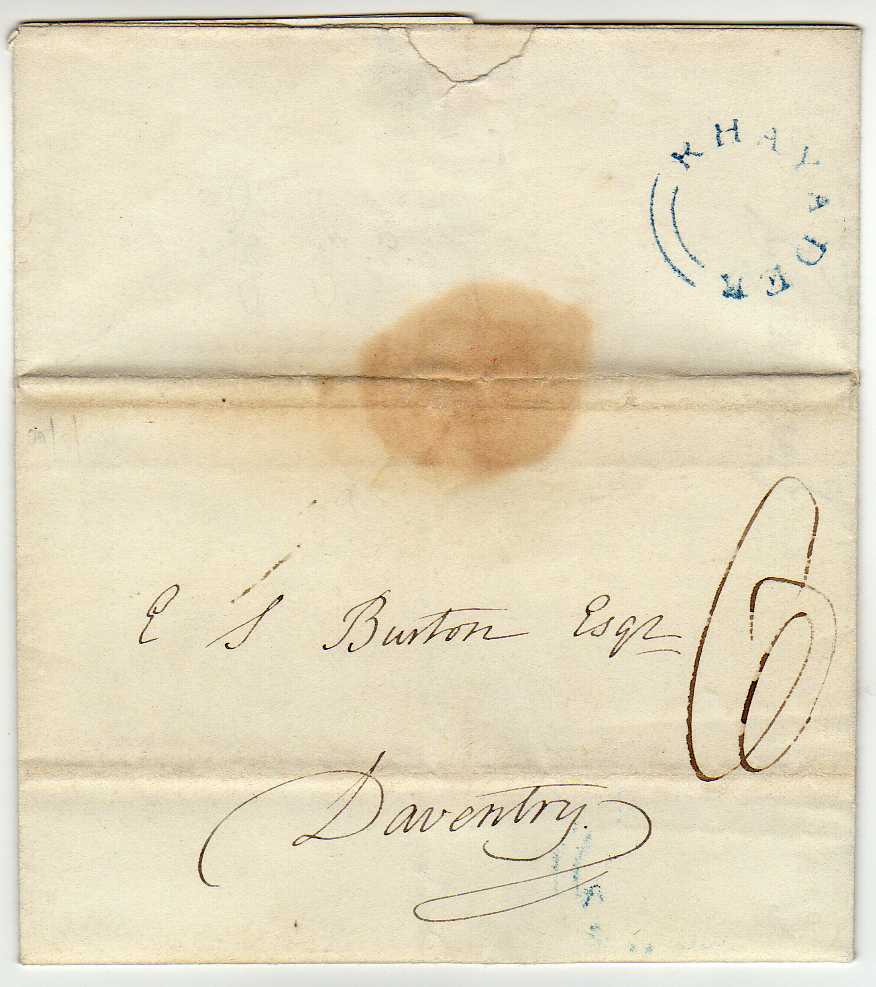 RHAYADER
E S Burton Esqr
6
Daventry.